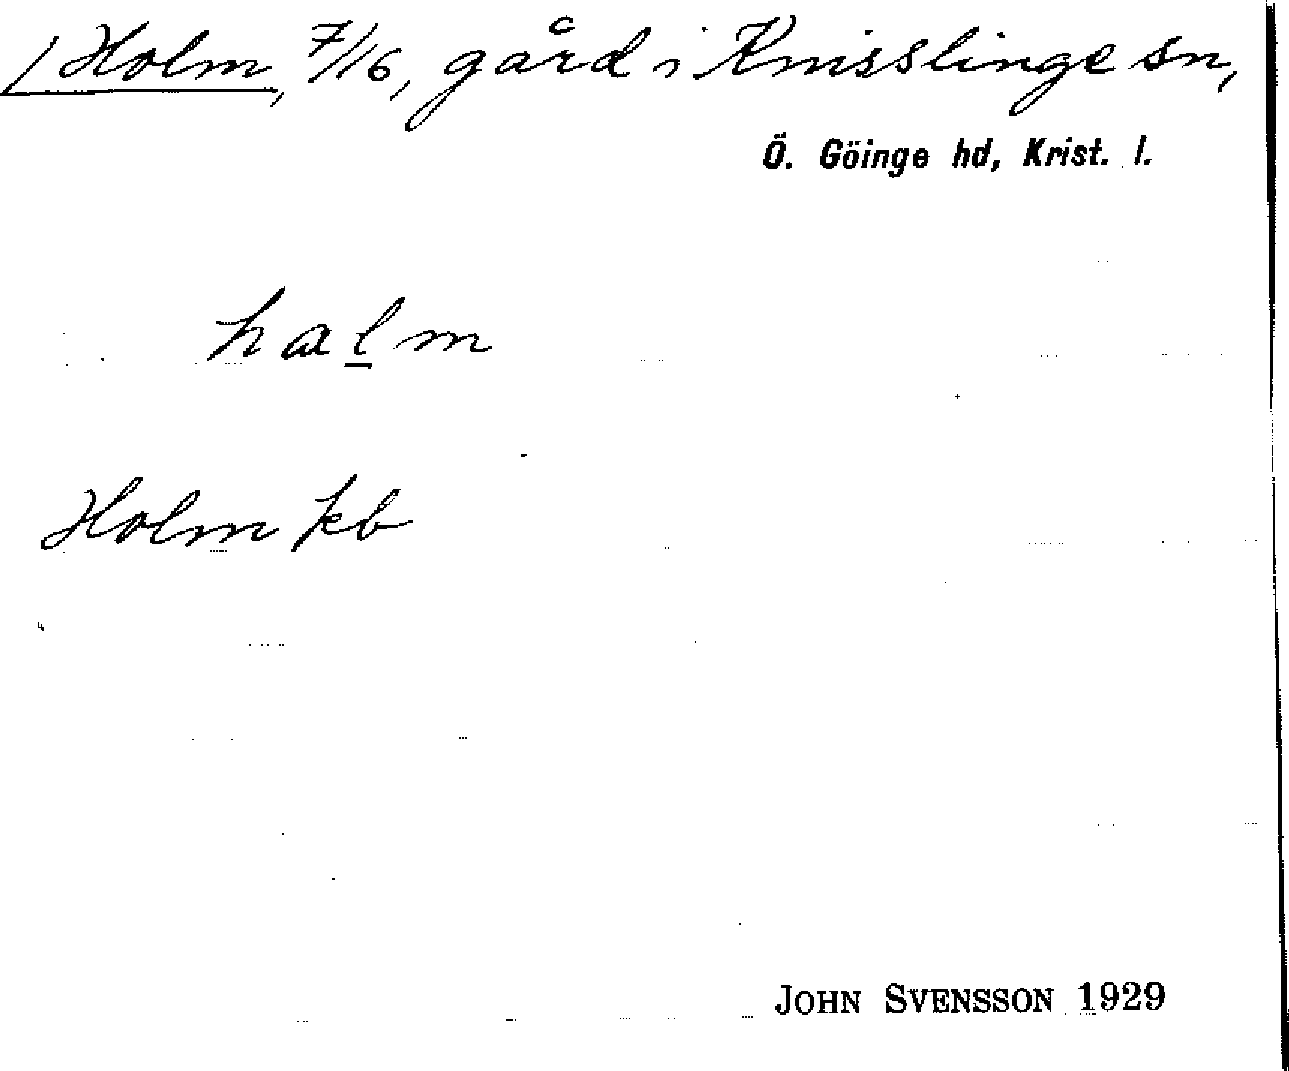 / Holm, 7/16, gård i Knisslinge sn,
Ö. Göinge hd, Krist. l.
halm
Holm kb
JOHN SVENSSON 1929